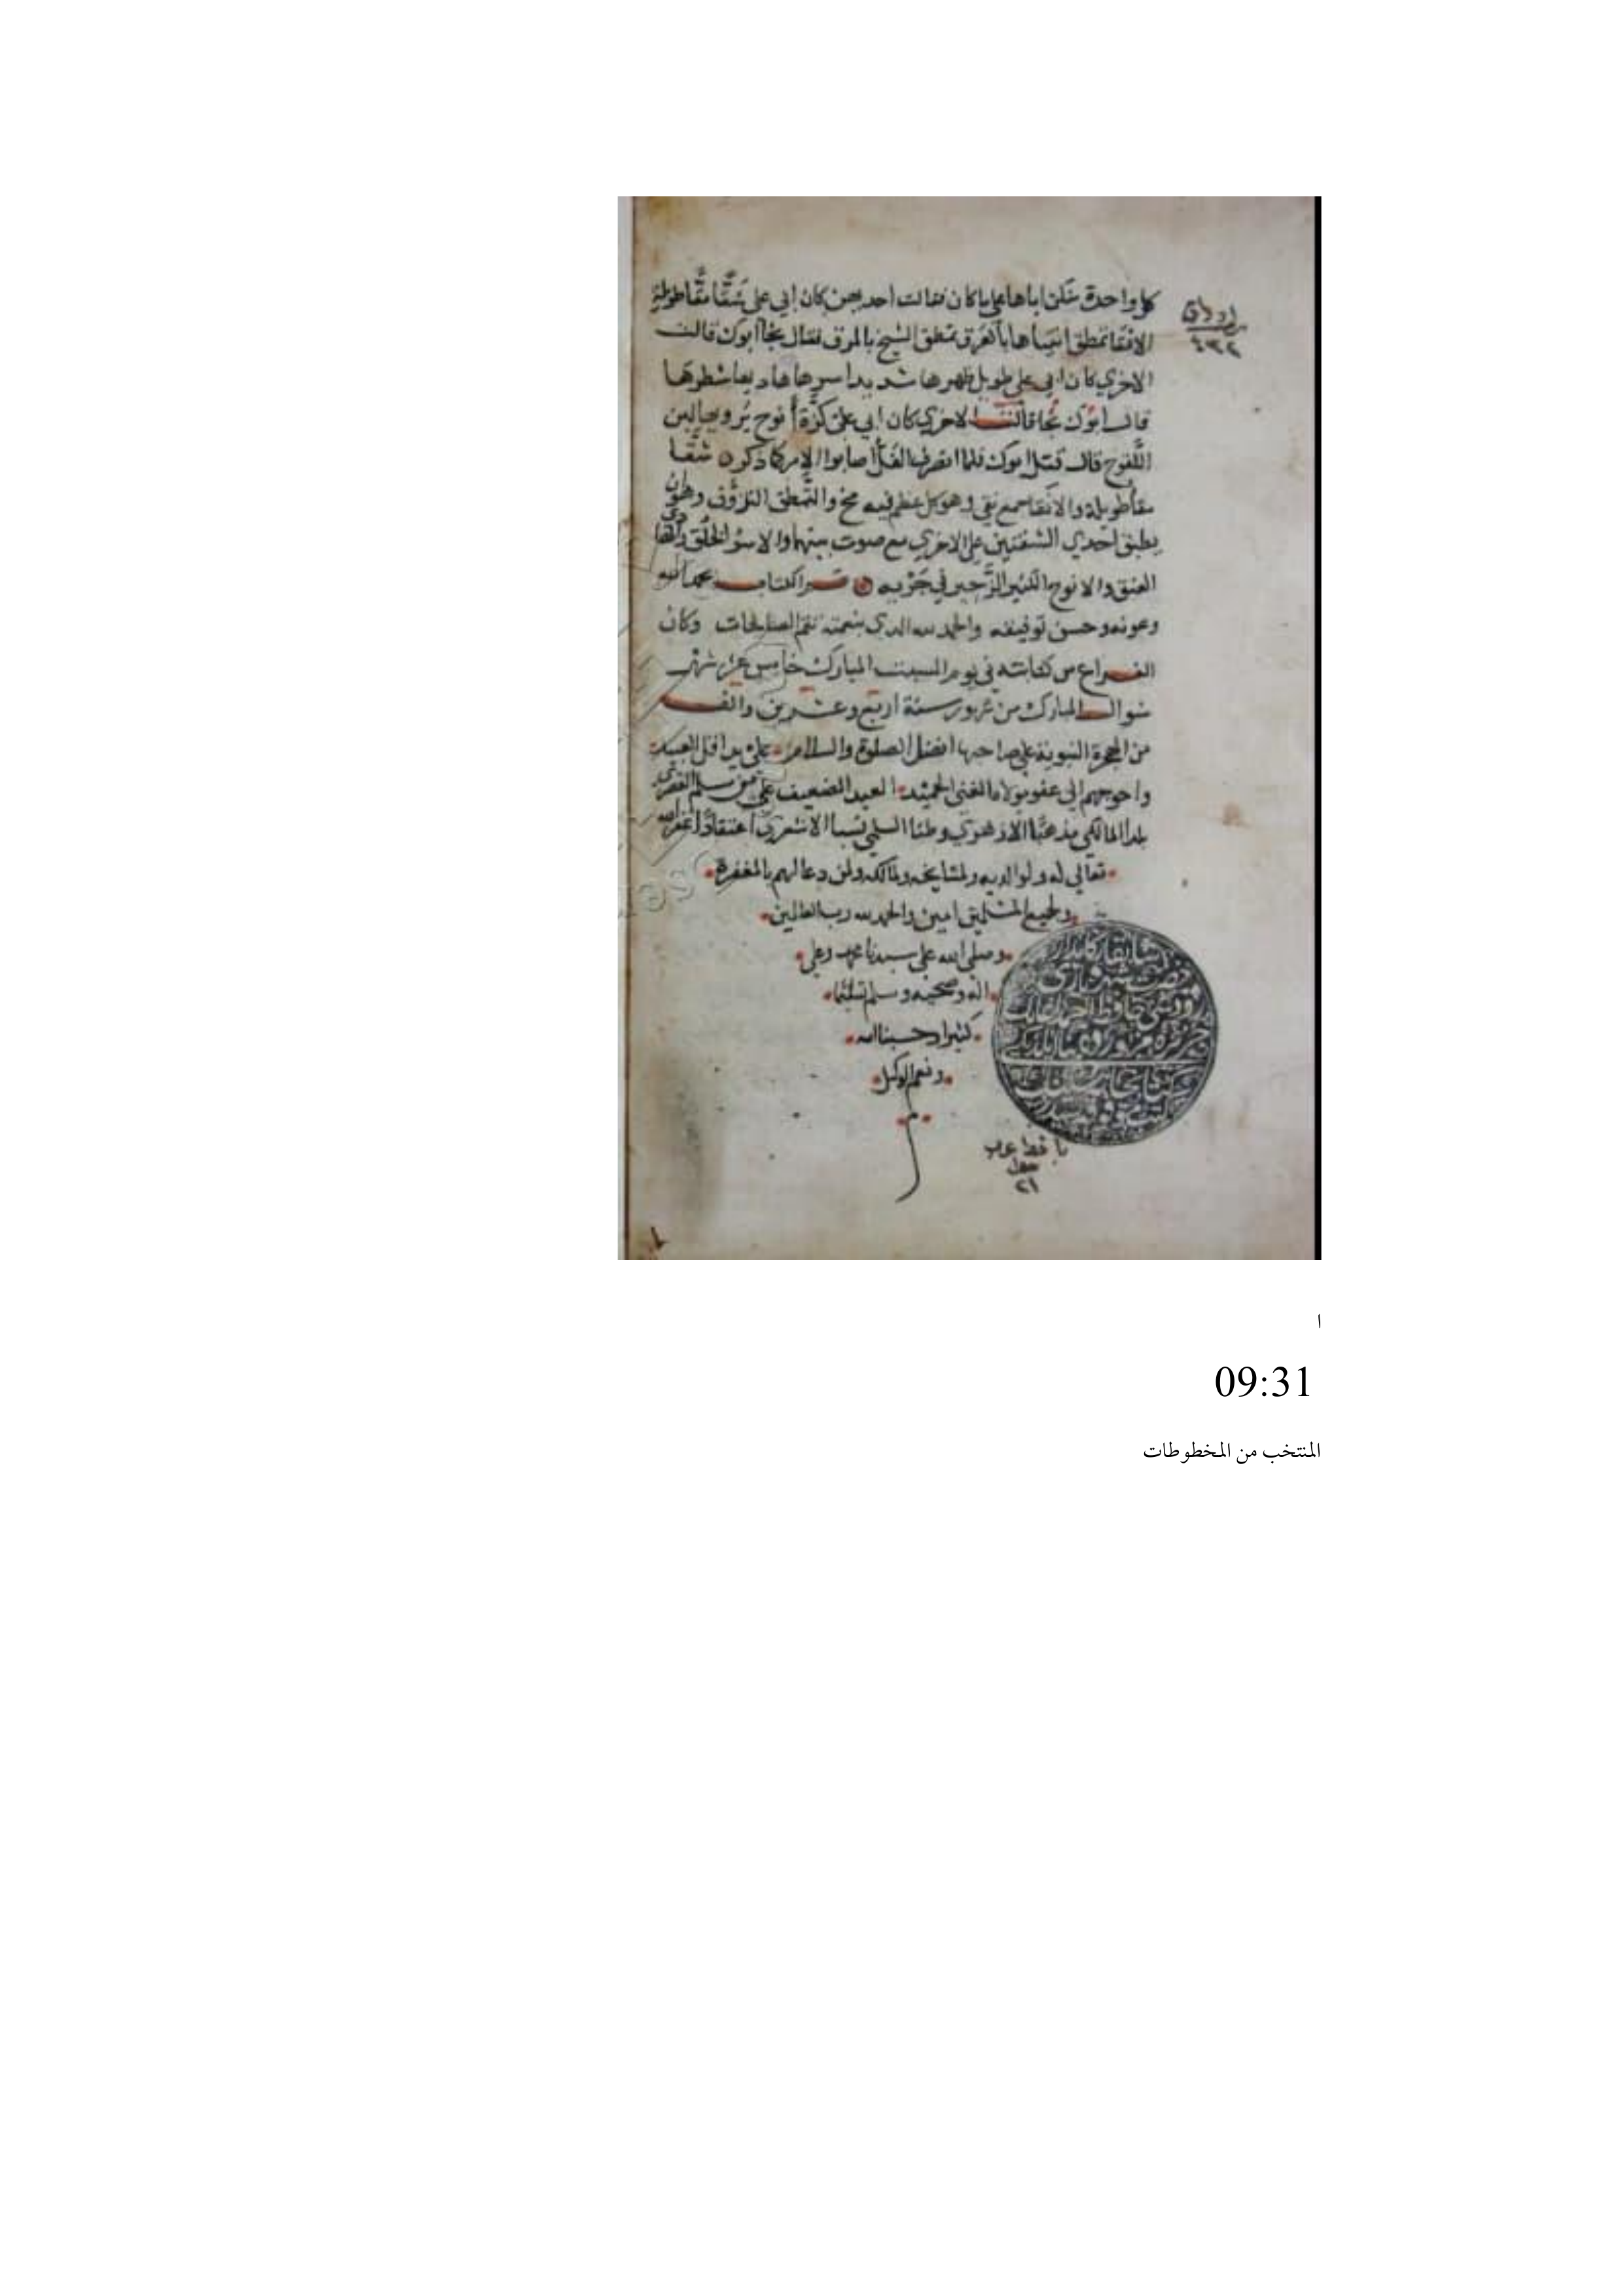 كل واحدة منكن اباها على ما كان فقالت احديهن كان ابي على شقا مقا طويلة
الانقا تمطق انثياها بالعرق تمطق الشيخ بالمرق فقال نجا ابوك قالت
الاخري كان ابي على طويل ظهرها شديد اسرها هاديها شطرها
قال ابوك نجا قالت الاخري كان ابي على كزة أنوح يرويها لبن
اللقوح قال قتل ابوك فلما انصرف الفل اصابوا الامر كما ذكر شقا
مقا طويلة والانقا جمع نقي وهو كل عظم فيه مخ والتمطق التذوق وهو ان
يطبق احدي الشفتين على الاخري مع صوت بينهما والاسر الخلق والهادي
العنق والانوح الكثير الزحير في جريه تم الكتاب بحمد الله
وعونه وحسن توفيقه والحمد لله الذي بنعمته تتم الصالحات وكان
الفراغ من كتابته في يوم السبت المبارك خامس عشر شهر
شوال المبارك من شهور سنة اربع وعشرين والف
من الهجرة النبوية على صاحبها افضل الصلوة والسلام على يد اقل العبيد
واحوجهم الى عفو مولاه الغني الحميد العبد الضعيف علي
بلدا المالكي مذهبا الازهري وطنا السلمي نسبا الاشعري اعتقادا غفر الله
تعالى له ولوالديه ولمشايخه ولمالكه ولمن دعا لهم بالمغفرة
ولجميع المسلمين امين والحمد لله رب العالمين
وصلى الله على سيدنا محمد وعلى
اله وصحبه وسلم تسليما
كثيرا وحسبنا الله
ونعم الوكيل
م
اوراق
٤٣٢
٢١
ا
09:31
المنتخب من المخطوطات